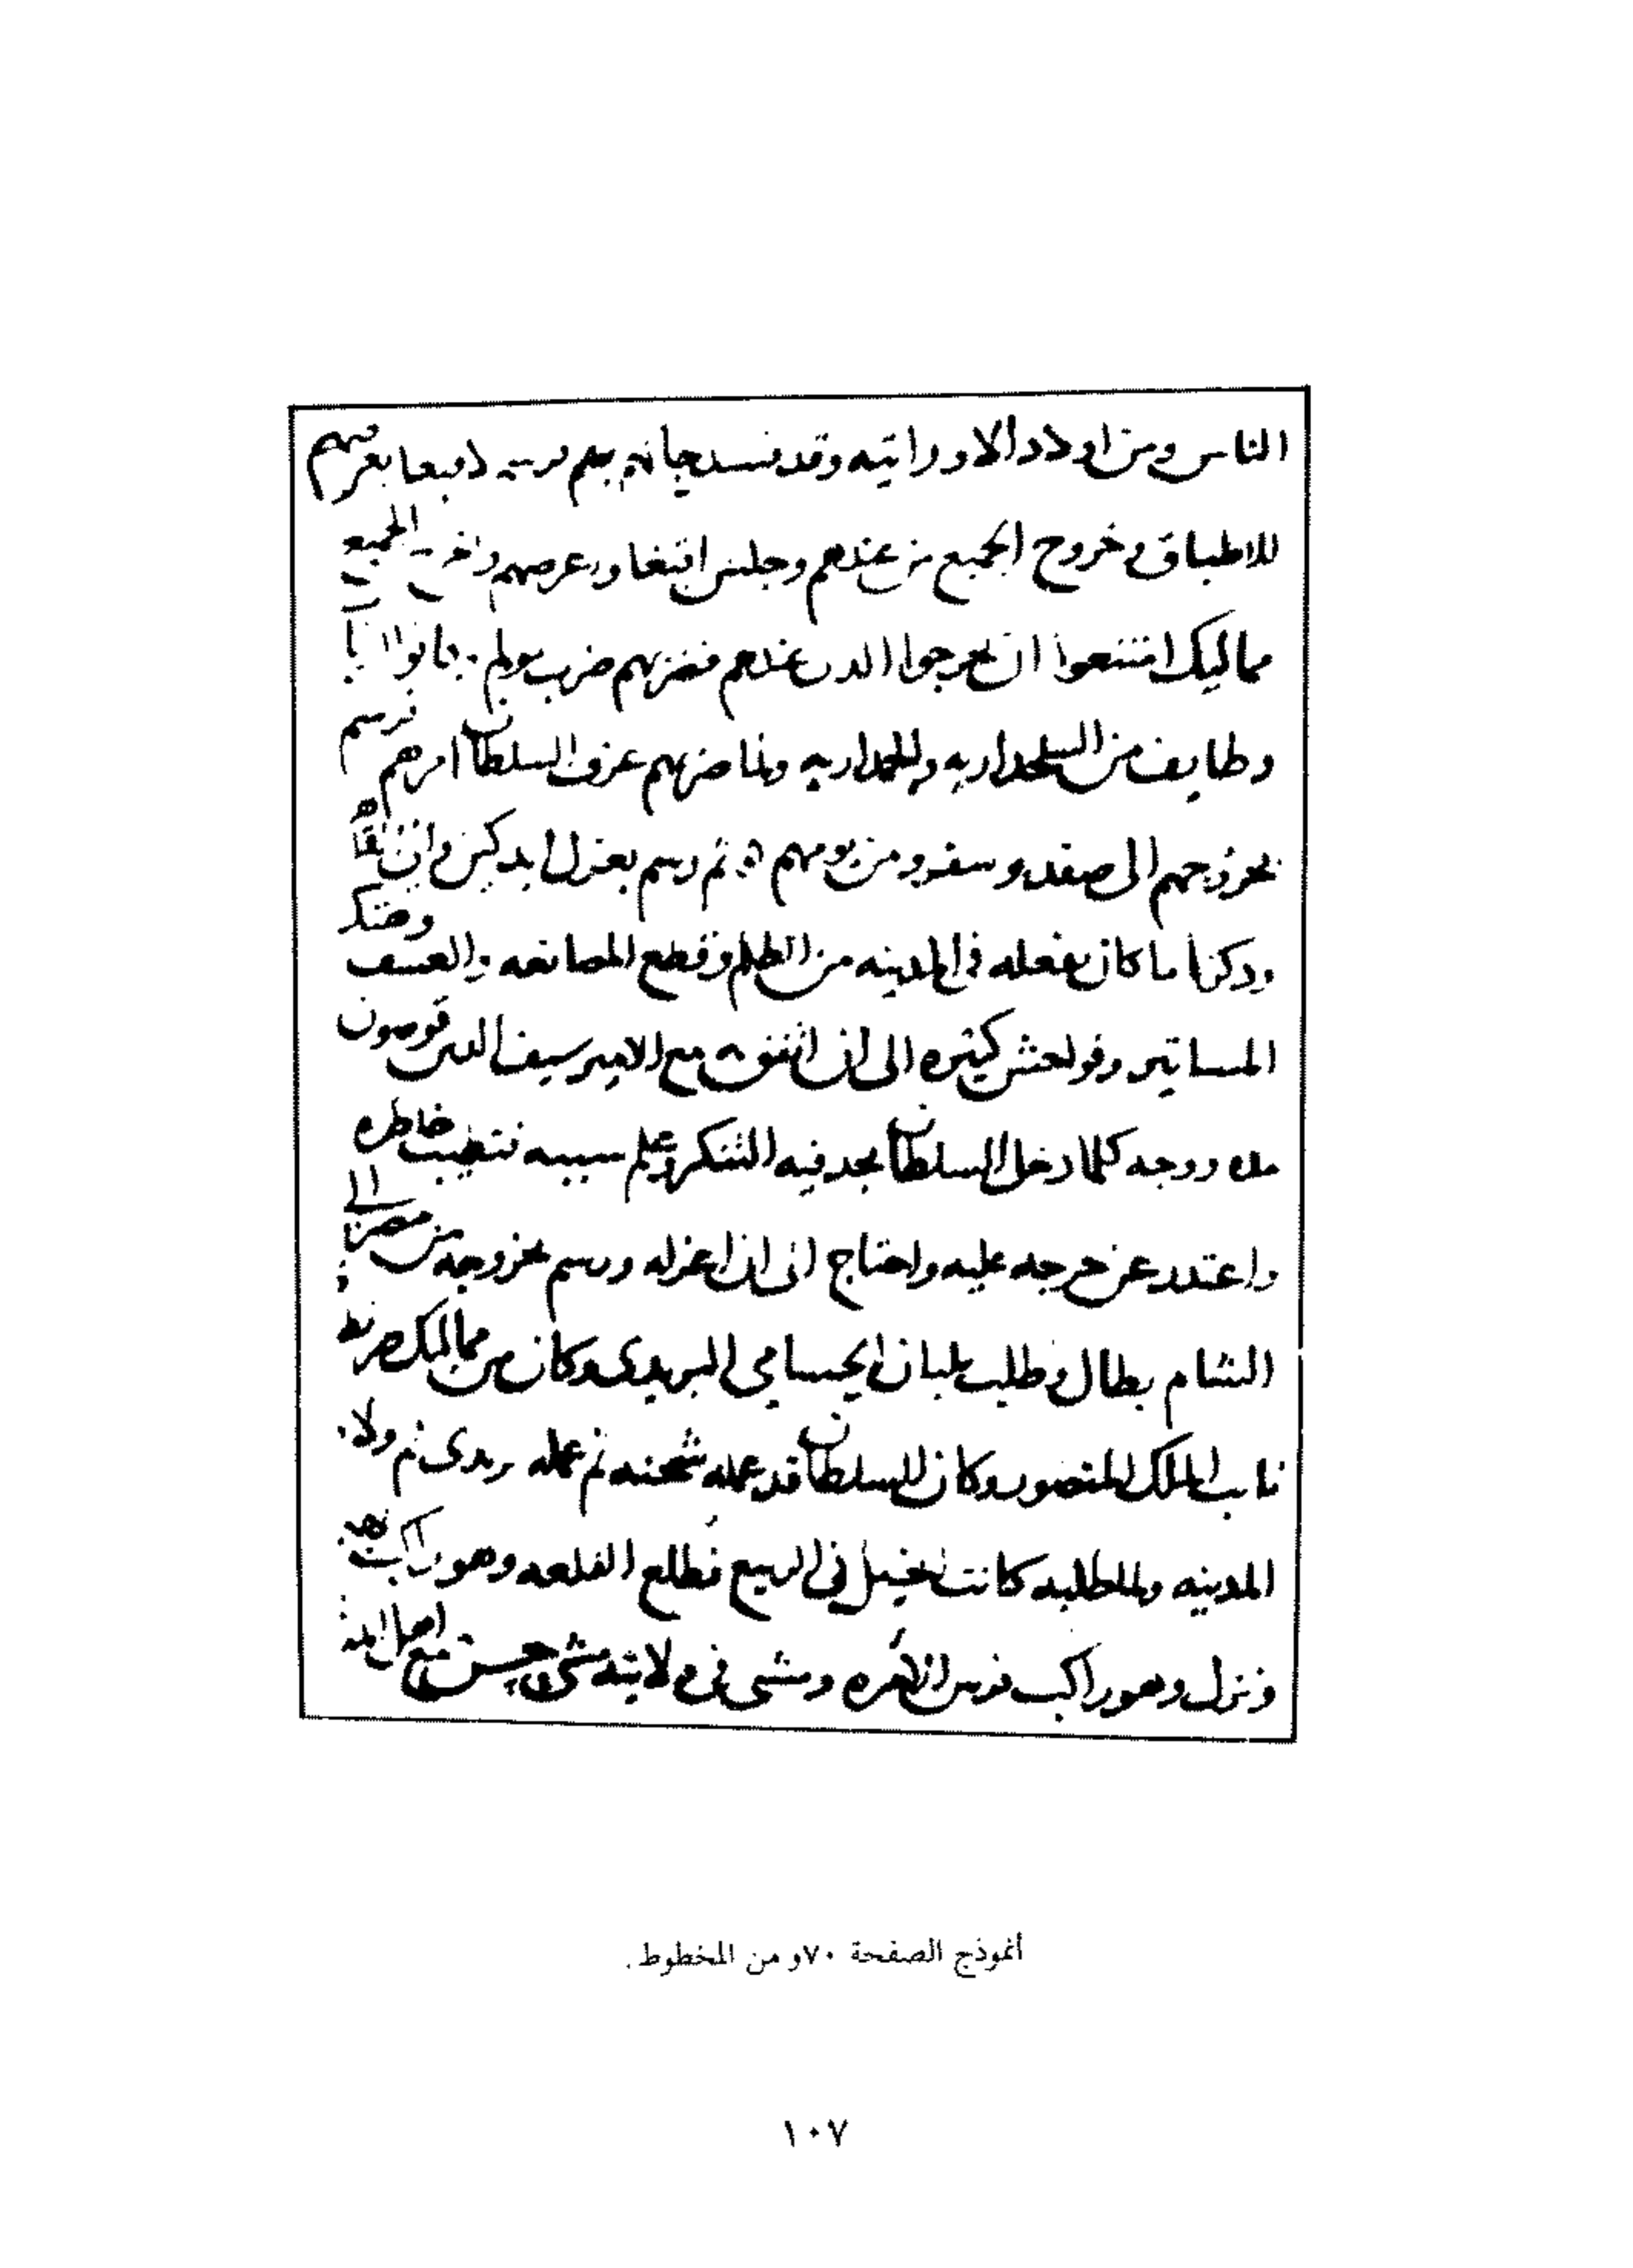 الناس ومن اولاد الاوراتيه وقد فسد جماعه
للاطباق وخروج الجميع من عندهم وجلس اقبغا وعرضهم واخرج الجميع
مماليك امتنعوا ان يخرجوا الدى عندهم فضربهم ضرب مولم
وطايفه من السلحداريه والجمداريه ولما ضربهم عرف السلطان امرهم فرسم
بخروجهم الى صفد وسفرو من يومهم ثم رسم بعزل ايدكين وان
ودكرنا ما كان يفعله فى المدينه من الظلم وقطع المصانعه والعسف وهتك
المساتير وفواحش كثيره الى ان اتفق مع الامير سيف الدين قوصون
مده ووجه كلما دخل السلطان يجد فيه التنكر وعلم سببه فتطيب خاطره
واعتدر عن حرجه عليه واحتاج الى ان اعزله ورسم بخروجه من مصر الى
الشام بطال وطلب بلبان الحسامي البريدى وكان من مماليك طرنطا
نايب الملك المنصور وكان السلطان قد عمله شحنه ثم عمله بريدى ثم ولاه
المدينه ولما طلبه كانت الخيل فى الربيع فطلع القلعه وهو راكب
ونزل وهو راكب فرس ومشى فى ولايته مشى حسن مع اهل
أنموذج الصفحة ٧٠و من المخطوط.
١٠٧